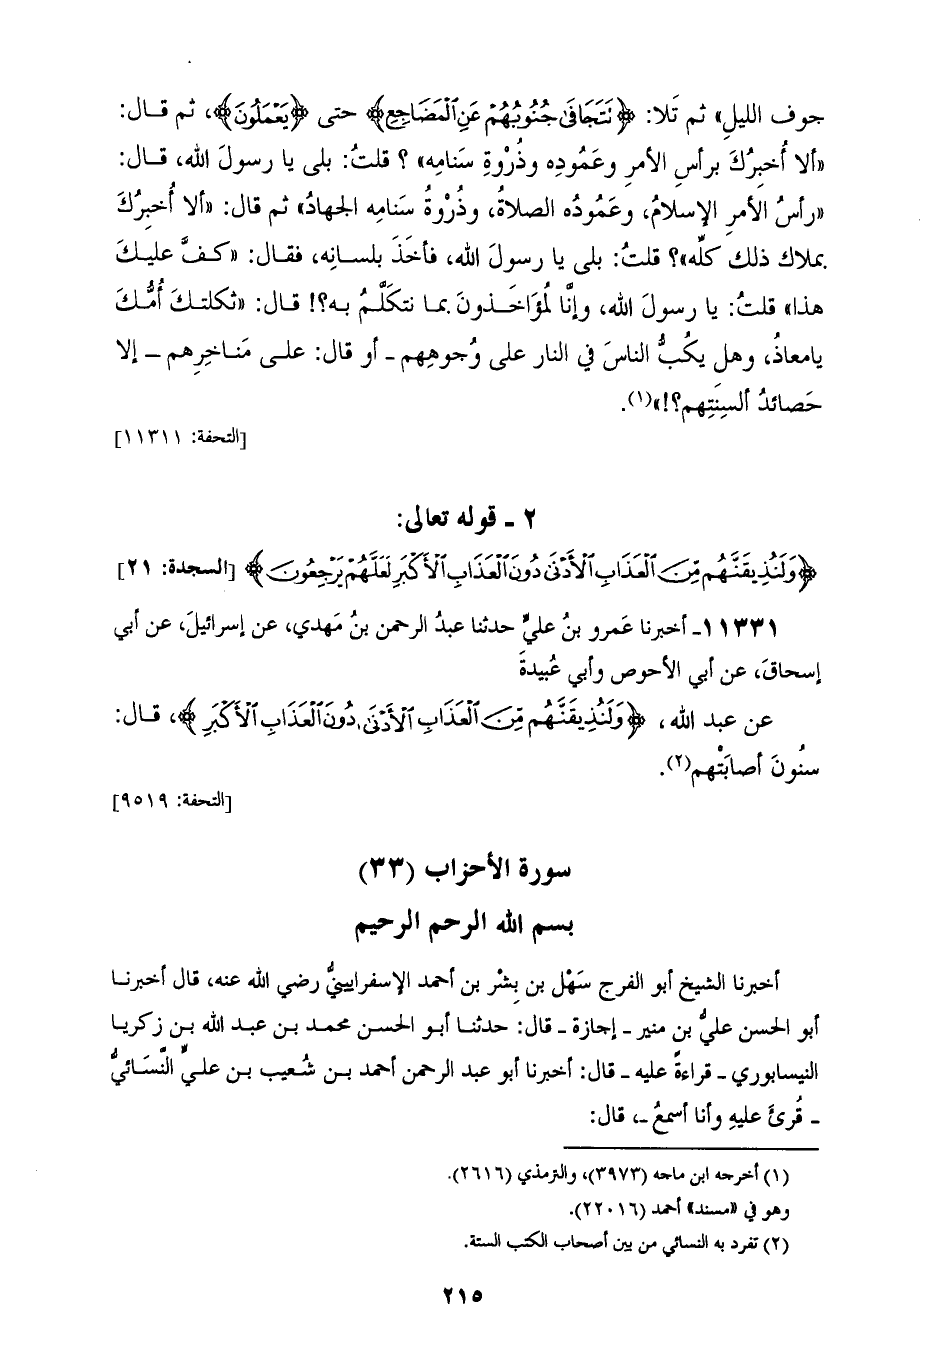 جوف الليلِ» ثم تَلا: ﴿نَتَجَافَىٰ جُنُوبُهُمْ عَنِ ٱلْمَضَاجِعِ﴾ حتى ﴿يَعْمَلُونَ﴾، ثم قـال:
«ألا أُخبِرُكَ برأسِ الأمرِ وعَمُودِه وذُرْوةِ سَنامِه» ؟ قلتُ: بلى يا رسولَ الله، قـال:
«رأسُ الأمرِ الإسلامُ، وعَمُودُه الصلاةُ، وذُرْوةُ سَنامِه الجهادُ» ثم قال: «ألا أُخبِرُكَ
بملاك ذلك كلِّه»؟ قلتُ: بلى يا رسولَ الله، فأخَذَ بلسانِه، فقـال: «كـفَّ عليـكَ
هذا» قلتُ: يا رسولَ الله، وإنَّا لمُؤاخَـذونَ بمـا نتكلَّـمُ بـه؟! قـال: «ثكلتـكَ أمُّـكَ
يامعاذُ، وهل يكُبُّ الناسَ في النار على وُجوهِهم ـ أو قال: علـى مَنـاخِرِهم ـ إلا
حَصائدُ ألسِنَتِهم؟!»(١).
[التحفة: ١١٣١١]
٢ ـ قوله تعالى:
﴿وَلَنُذِيقَنَّهُم مِّنَ ٱلْعَذَابِ ٱلْأَدْنَىٰ دُونَ ٱلْعَذَابِ ٱلْأَكْبَرِ لَعَلَّهُمْ يَرْجِعُونَ﴾ [السجدة: ٢١]
١١٣٣١ـ أخبرنا عَمرو بنُ عليٍّ حدثنا عبدُ الرحمن بنُ مَهدي، عن إسرائيلَ، عن أبي
إسحاقَ، عن أبي الأحوص وأبي عُبيدةَ
عن عبد الله، ﴿وَلَنُذِيقَنَّهُم مِّنَ ٱلْعَذَابِ ٱلْأَدْنَىٰ دُونَ ٱلْعَذَابِ ٱلْأَكْبَرِ﴾، قـال:
سنُونَ أصابَتْهم(٢).
[التحفة: ٩٥١٩]
سورة الأحزاب (٣٣)
بسم الله الرحم الرحيم
أخبرنا الشيخ أبو الفرج سَهْل بن بِشْر بن أحمد الإسفرايينيُّ رضي الله عنه، قال أخبرنـا
أبو الحسن عليُّ بن منير ـ إجازة ـ قال: حدثنـا أبـو الحسـن محمـد بـن عبـد الله بـن زكريـا
النيسابوري ـ قراءةً عليه ـ قال: أخبرنا أبو عبد الرحمن أحمد بـن شُعيب بـن علـيٍّ النَّسَـائيُّ
ـ قُرئَ عليهِ وأنا أسمعُ ـ، قال:
(١) أخرجه ابن ماجه (٣٩٧٣)، والترمذي (٢٦١٦).
وهو في «مسند» أحمد (٢٢٠١٦).
(٢) تفرد به النسائي من بين أصحاب الكتب الستة.
٢١٥